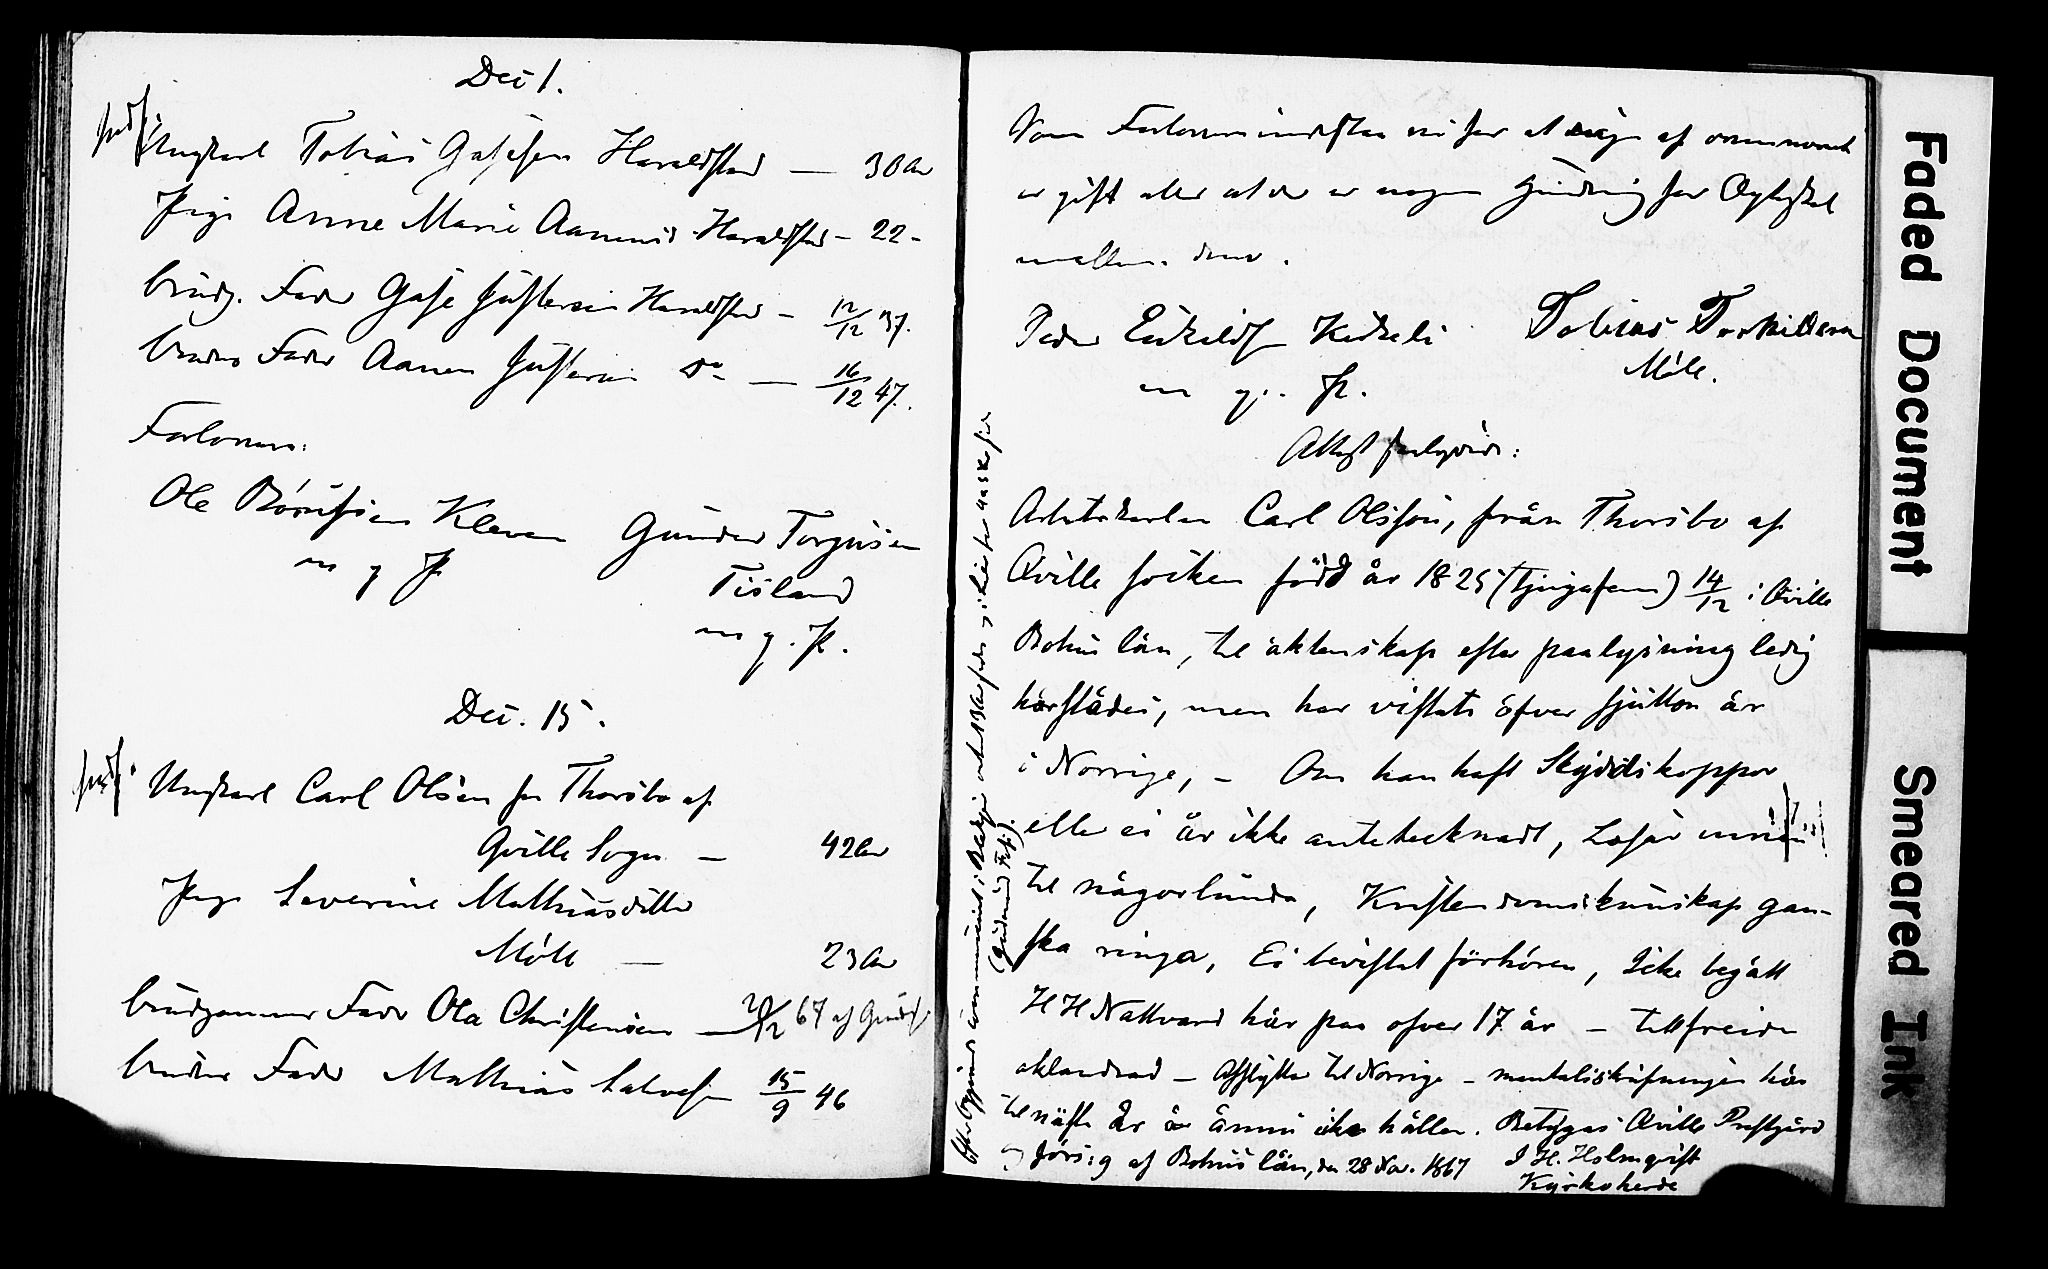 Dec 1.
Ungkarl Tobias Gasesen Haraldstad — 30 Aar
Pige Anne Marie Aanensd. Haraldstad — 22 -
brudg. Fader Gase Justersen Haraldstad — 12/12 37.
brudens Fader Aanen Justersen do — 16/12 47.
Forlovere:
Ole Børufsen Kleven Gunder Torjusen
m q p Tisland
m q. p.
Dec. 15.
Ungkarl Carl Olsen fra Thorsbo af
Qville Sogn — 42 Aar
Pige Severine Mathiasdatter
Möll — 23 Aar
brudgommens Fader Ola Christensen — 67 af
brudens Fader Mathias Salvesen 15/9 46
Som Forlovere indestaa vi for at af ovennævnte
er gift eller at der er nogen Hindring for Ægteskab
mellem dem.
Peder Eskildsen Tobias Torkildsen
m q. p. Möll.
Attest saalydende:
Arbetskarlen Carl Olsson, från Thorsbo af
Qville socken född år 1825 (tjugufem) 14/12 i Qville
Bohus län, til äktenskap efter paalysning ledig
härstädes, men har vistats öfver sjutton år
i Norrige, — Om han haft Skyddskoppor
eller ei är ikke antecknadt, Läser innan
til någorlunda, Kristendomskunskap gan-
ska ringa, Ei bevistat förhören, Icke begått
H H Nattvard här paa öfver 17 år — till
oklandrad — Afflyttar til Norrige — mantalsskrifningen här
til näste år är ännu icke hållen. Betygas Qville Prestgård
af Bohus län, den 28 Nov. 1867 J H. Holmqvist
Kyrkoherde
Faded Document
Smeared Ink